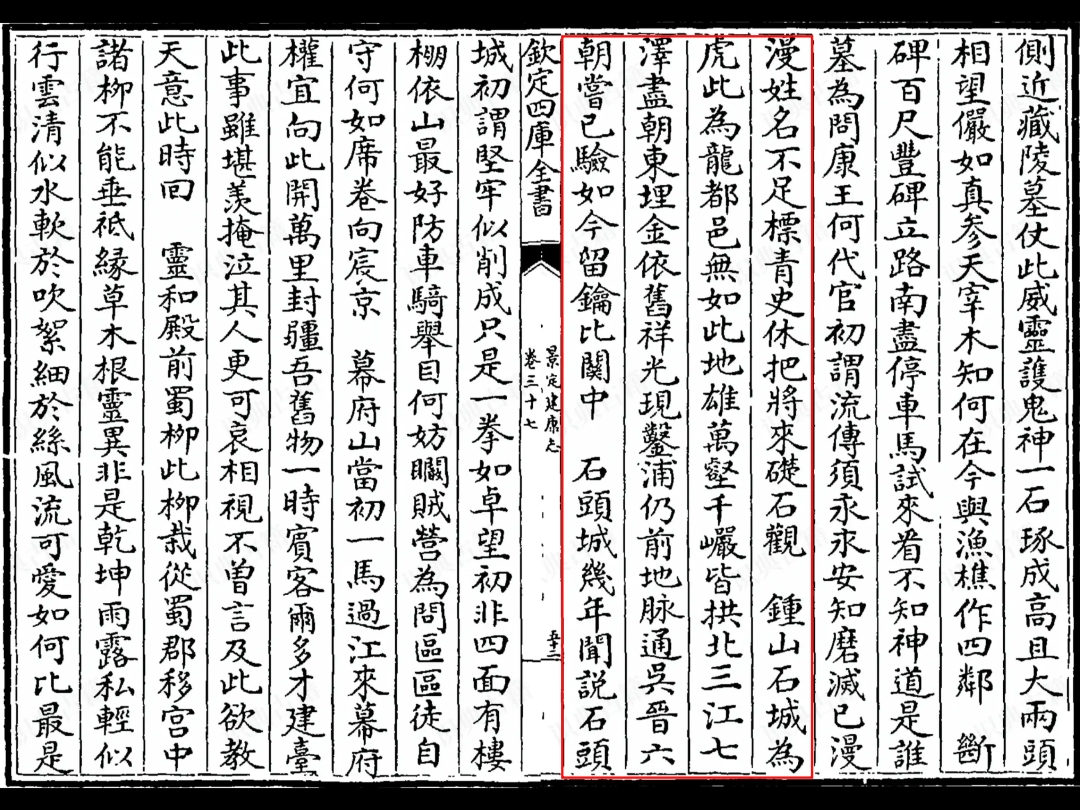 側近藏陵墓仗此威靈護鬼神一石琢成高且大兩頭
相望儼如真参天宰木知何在今與漁樵作四鄰　斷
碑百尺豐碑立路南盡停車馬試來看不知神道是誰
墓為問康王何代官初謂流傳須永永安知磨滅已漫
漫姓名不足標青史休把將來礎石觀　鍾山石城為
虎此為龍都邑無如此地雄萬壑千巗皆拱北三江七
澤盡朝東埋金依舊祥光現鑿浦仍前地脉通吳晉六
朝嘗已驗如今留鑰比關中　石頭城幾年聞説石頭
欽定四庫全書
景定建康志
卷三十七
五十二
城初謂堅牢似削成只是一拳如卓望初非四面有樓
棚依山最好防車騎舉目何妨瞯賊營為問區區徒自
守何如席卷向宸京　幕府山當初一馬過江來幕府
權宜向此開萬里封疆吾舊物一時賓客爾多才建臺
此事雖堪羨掩泣其人更可哀相視不曽言及此欲教
天意此時回　靈和殿前蜀柳此柳栽從蜀郡移宫中
諸柳不能垂祗縁草木根靈異非是乾坤雨露私輕似
行雲清似水軟於吹絮細於絲風流可愛如何比最是